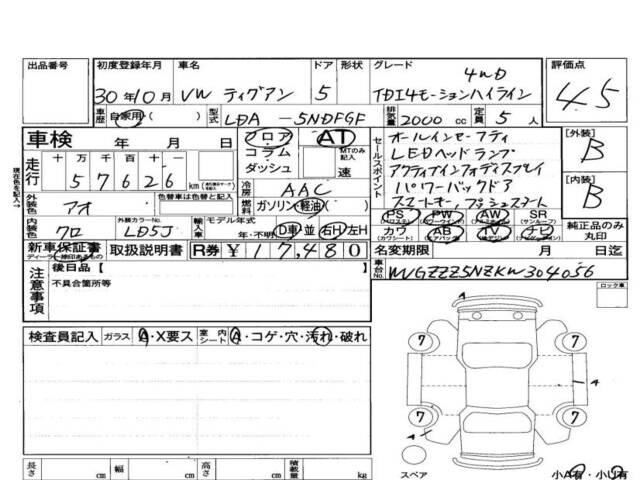 出品番号 初度登録年月 車名 ドア 形状 グレード 評価点
30年10月 VW ティグアン 5 4WD TDI4モーションハイライン 4.5
車歴 自家用 型式 LDA - 5NDFGF 排気量 2000 cc 定員 5 人
車検 年 月 日 フロア AT オールインセーフティ [外装] B
コラム MTのみ記入 LEDヘッドランプ
ダッシュ 速 セールスポイント アクティブインフォディスプレイ
走行 十 万 千 百 十 一 57626 km 冷房 AAC パワーバックドア [内装] B
現在色を記入→ 外装色 アオ 色替車は色替と記入 燃料 ガソリン・軽油( ) スマートキー, プッシュスタート
内装色 クロ 外装カラーNo. LD5J 輸入車 モデル年式 年・不明 D車 並 右H 左H
PS PW AW SR
(パワステ) (パワーウインド) (サンルーフ)
カワ AB TV ナビ 純正品のみ丸印
(カワシート) (エアバッグ)
新車保証書 取扱説明書 R券 ¥17,480 名変期限 月 日迄
後日品【 】 車台No. WVGZZZ5NZKW304056
注意事項 不具合箇所等
ロック車
検査員記入 ガラス A・X要ス 室内シート A・コゲ・穴・汚れ・破れ
A
7 7
A
7 7
スペア 小A有・小U有
長さ cm 幅 cm 高さ cm 積載量 kg